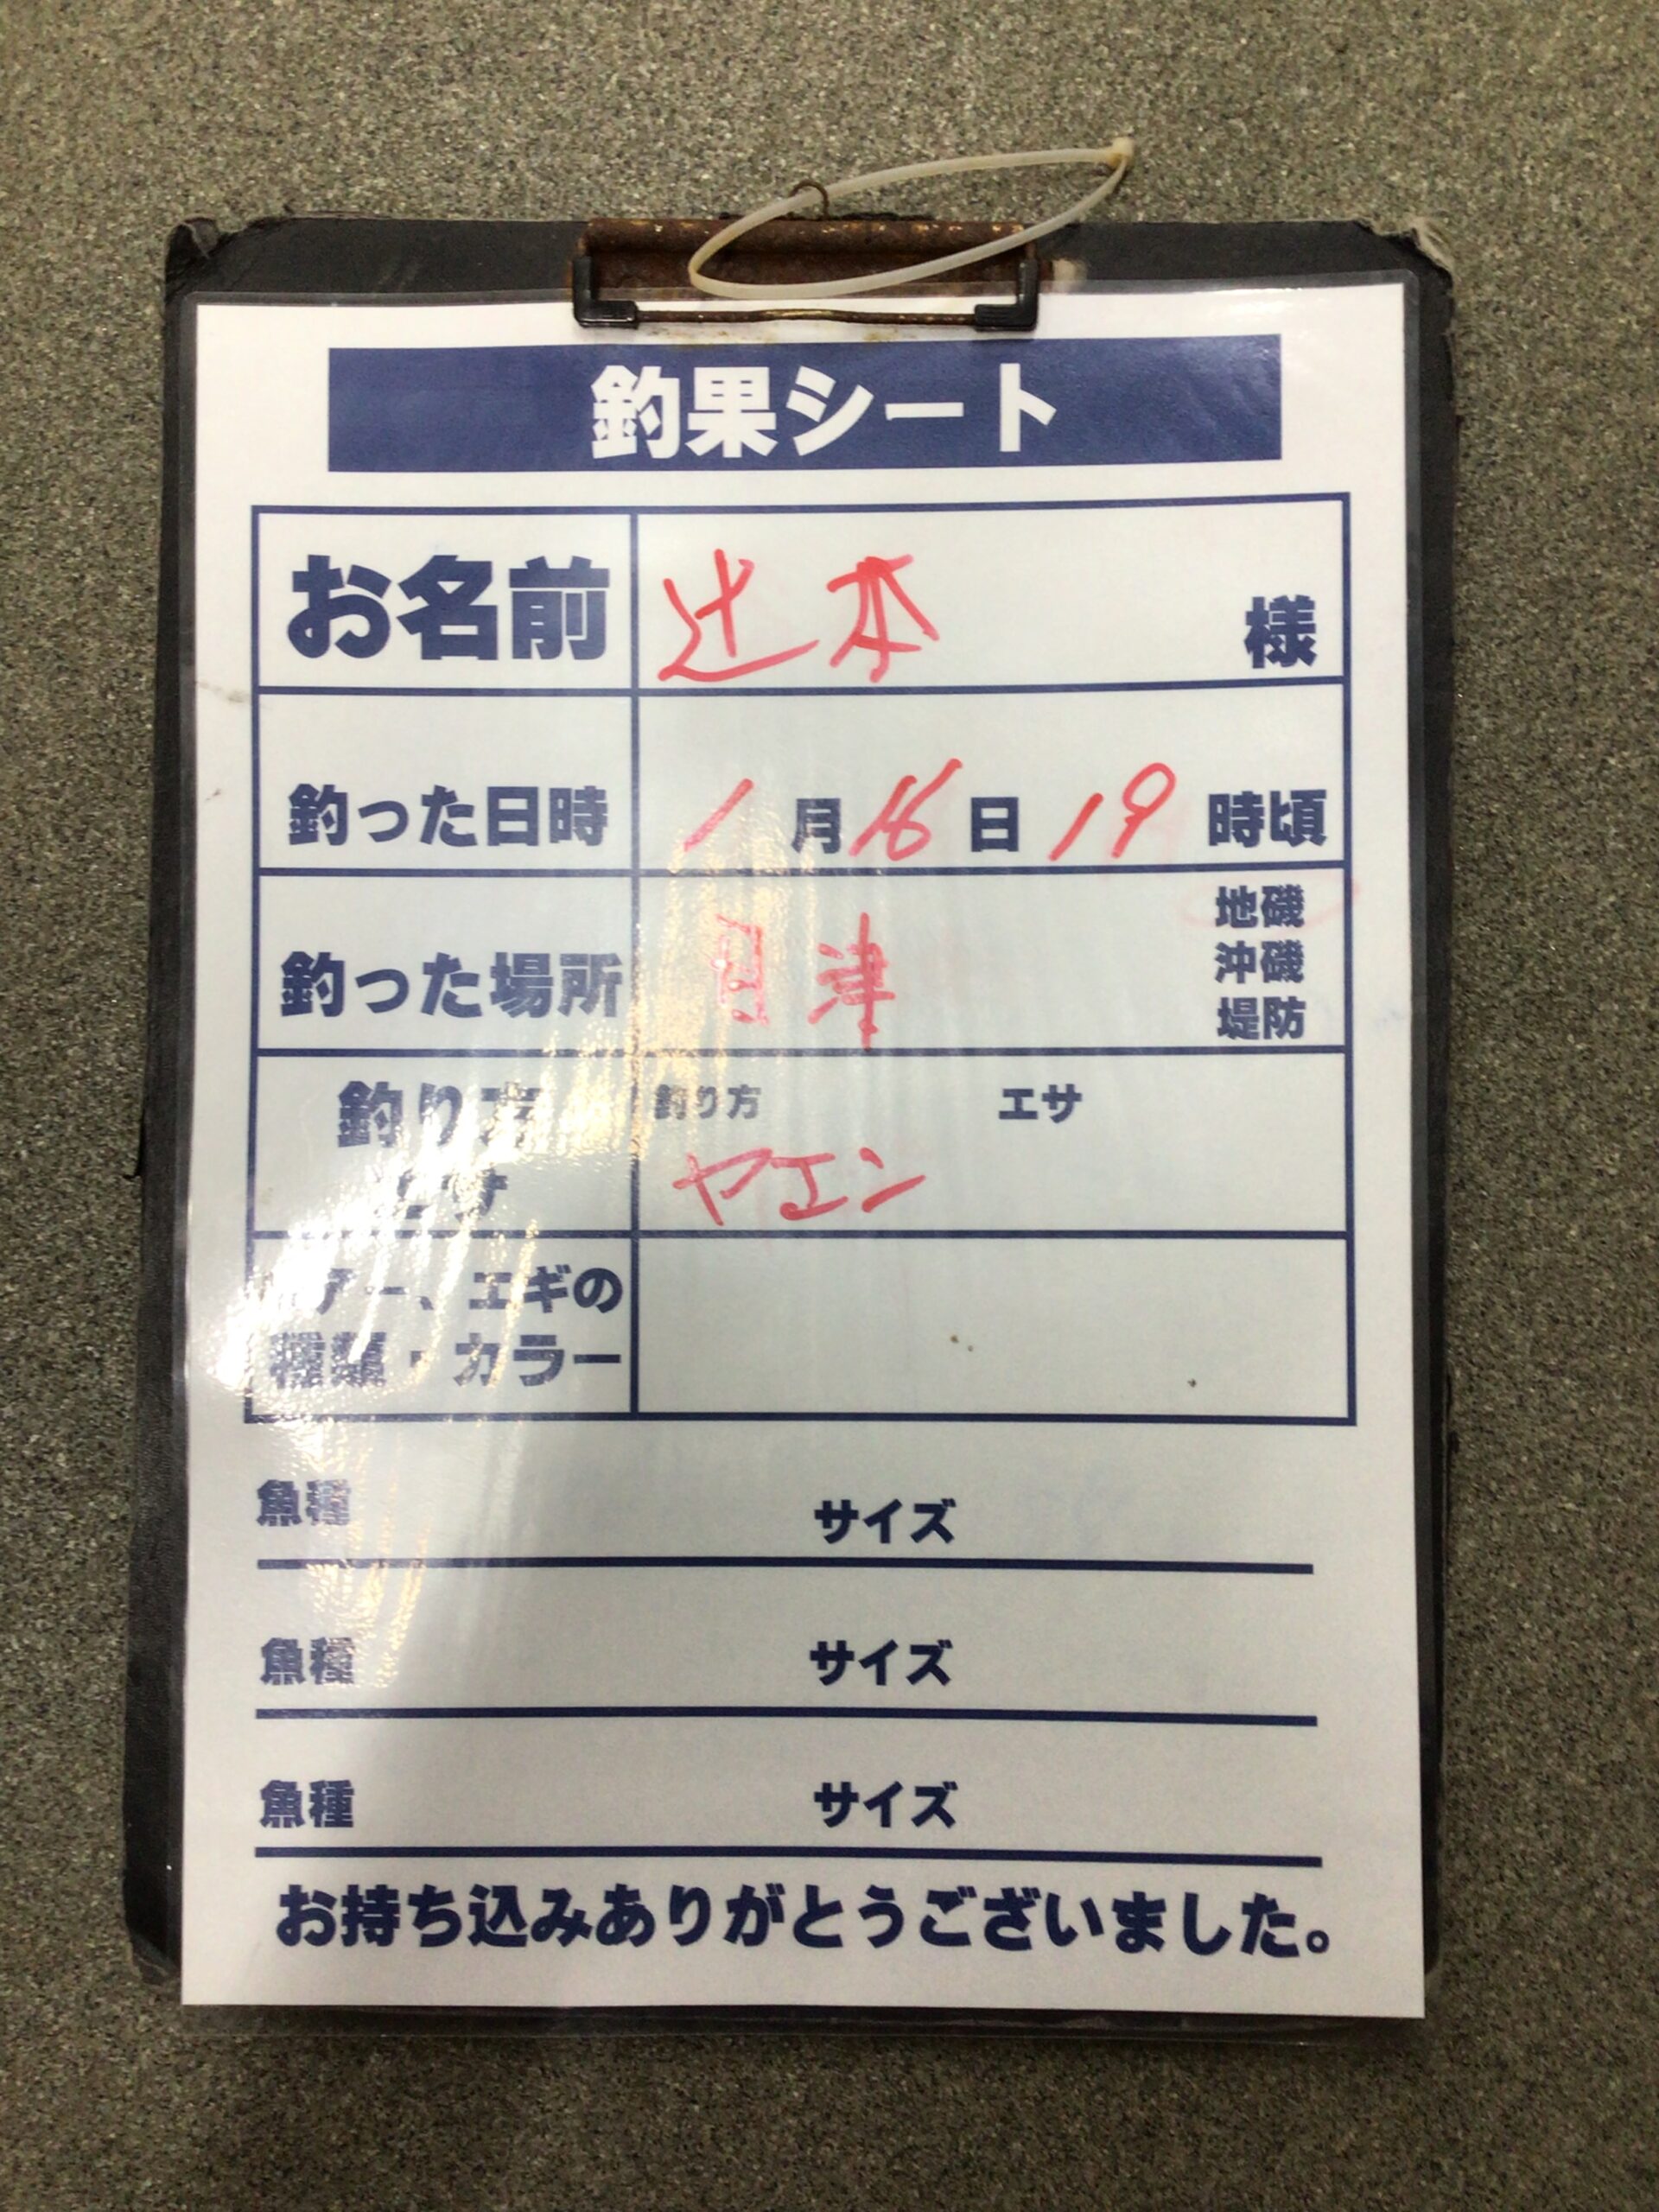 釣果シート
お名前 辻本 様
釣った日時 1月16日19時頃
地磯
釣った場所 津
沖磯
堤防
釣り方 釣り方 エサ
エサ ヤエン
ルアー、エギの
種類・カラー
魚種 サイズ
魚種 サイズ
魚種 サイズ
お持ち込みありがとうございました。